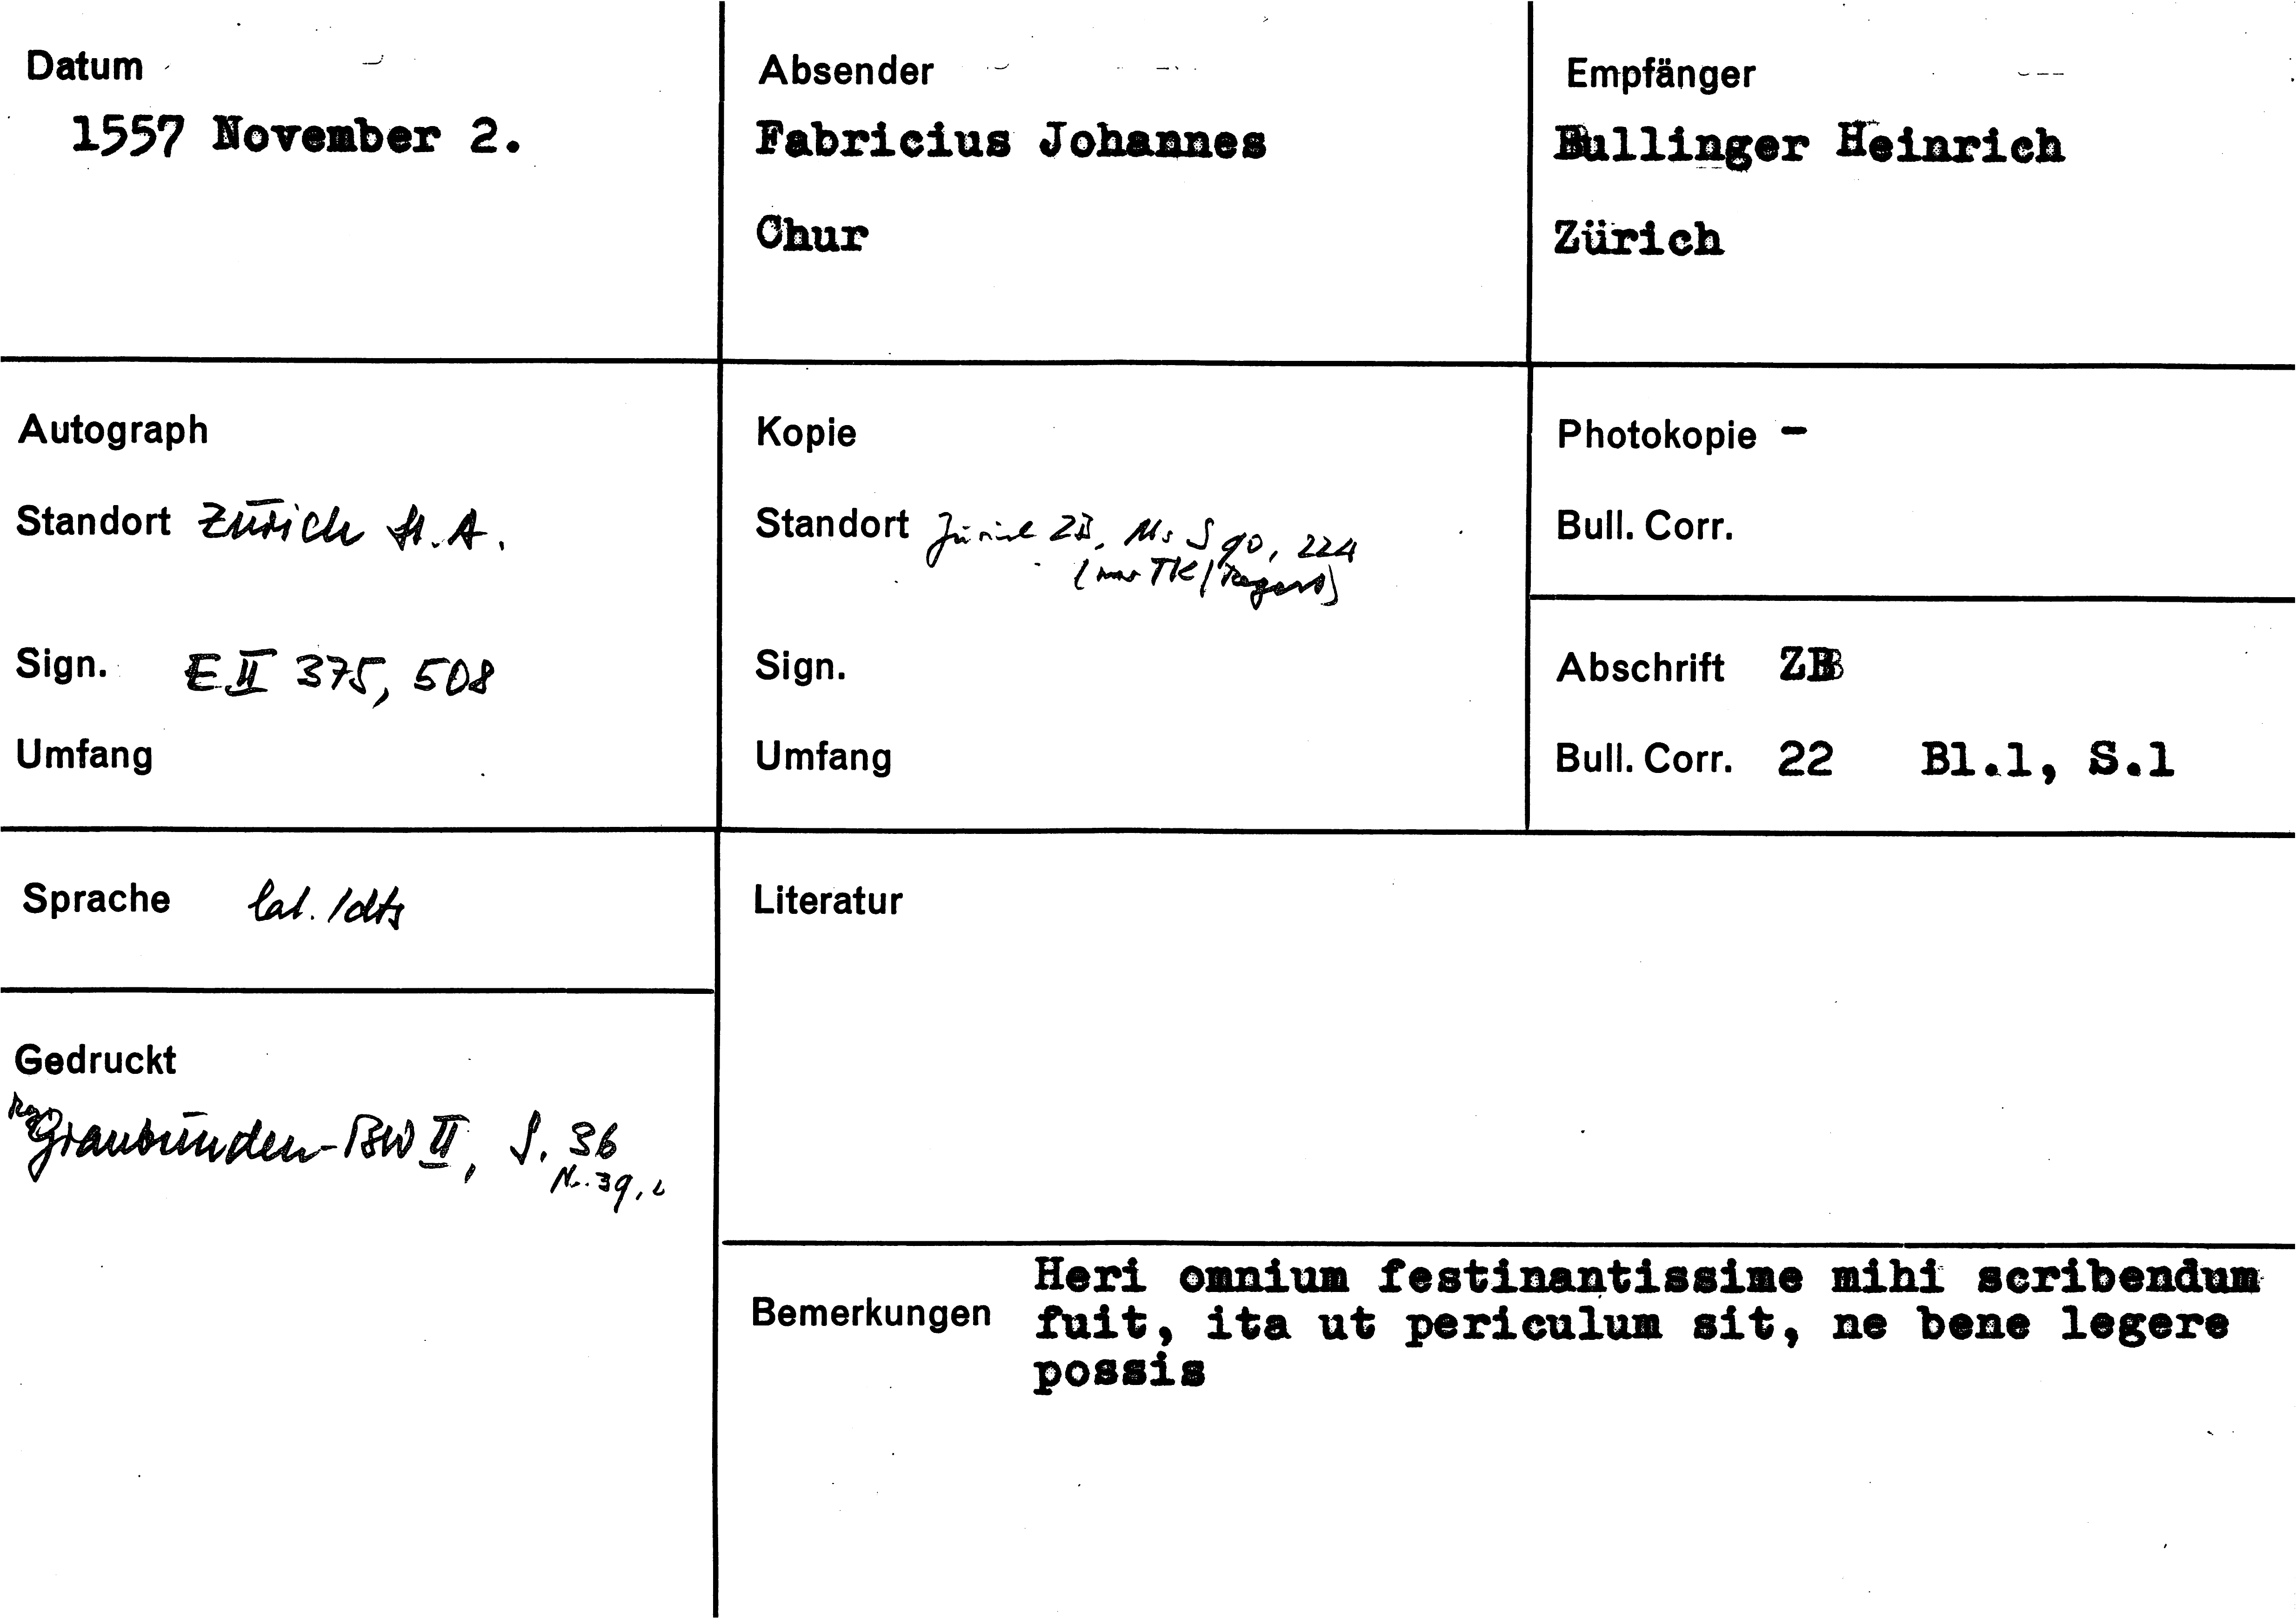 Datum
1557 November 2.
Absender
Fabricius Johannes
Chur
Empfänger
Bullinger Heinrich
Zürich
Autograph
Standort Zürich St.A.
Sign. E II 375, 508
Umfang
Kopie
Standort Zürich ZB, Ms S 90, 224
(nur TK/Regest)
Sign.
Umfang
Photokopie -
Bull. Corr.
Abschrift ZB
Bull. Corr. 22 Bl.1, S.1
Sprache lat./dts
Gedruckt
Reg. Graubünden-BW II, S. 36
Nr. 39,
Literatur
Bemerkungen
Heri omnium festinantissime mihi scribendum
fuit, ita ut periculum sit, ne bene legere
possis